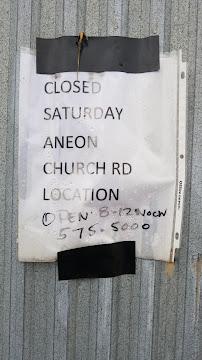 CLOSED
SATURDAY
ANEON
CHURCH RD
LOCATION
OPEN 8-12NOON
575-5000